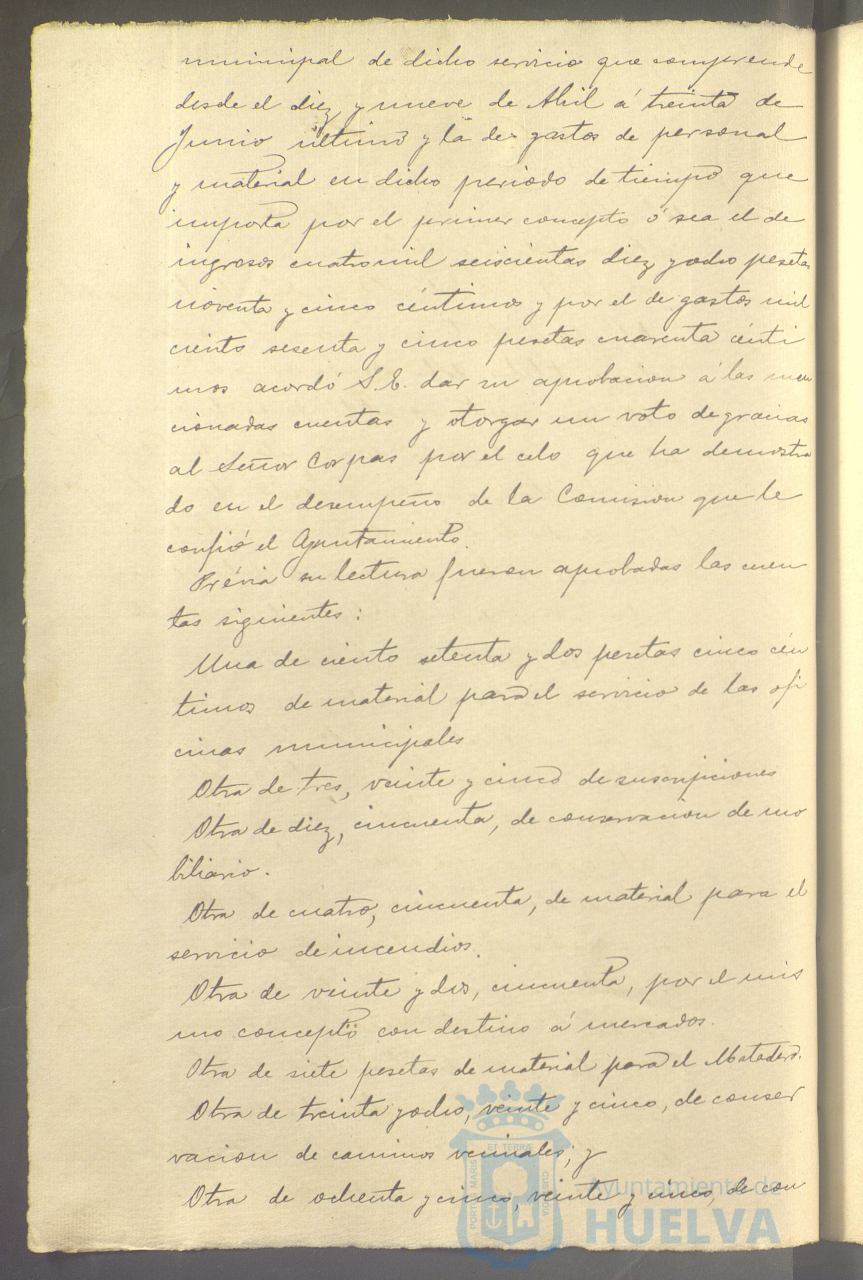 municipal de dicho servicio que comprende
desde el diez y nueve de Abril á treinta de
Junio último y la de gastos de personal
y material en dicho periodo de tiempo que
importa por el primer concepto ó sea el de
ingresos cuatro mil seiscientas diez y ocho pesetas
noventa y cinco céntimos y por el de gastos mil
ciento sesenta y cinco pesetas cuarenta cénti
mos acordó S.E. dar su aprobacion á las men
cionadas cuentas y otorgar un voto de gracias
al Señor Corpas por el celo que ha demostra
do en el desempeño de la Comision que le
confió el Ayuntamiento.
Prévia su lectura fueron aprobadas las cuen
tas siguientes:
Una de ciento setenta y dos pesetas cinco cén
timos de material para el servicio de las ofi
cinas municipales
Otra de tres, veinte y cinco de suscripciones
Otra de diez, cincuenta, de conservacion de mo
biliario.
Otra de cuatro, cincuenta, de material para el
servicio de incendios.
Otra de veinte y dos, cincuenta, por el mis
mo concepto con destino á mercados.
Otra de siete pesetas de material para el Matadero.
Otra de treinta y ocho, veinte y cinco, de conser
vacion de caminos vecinales; y
Otra de ochenta y cinco, veinte y cinco, de con
PORTUS MARIS ET TERRAE CUSTODIA
Ayuntamiento de
HUELVA